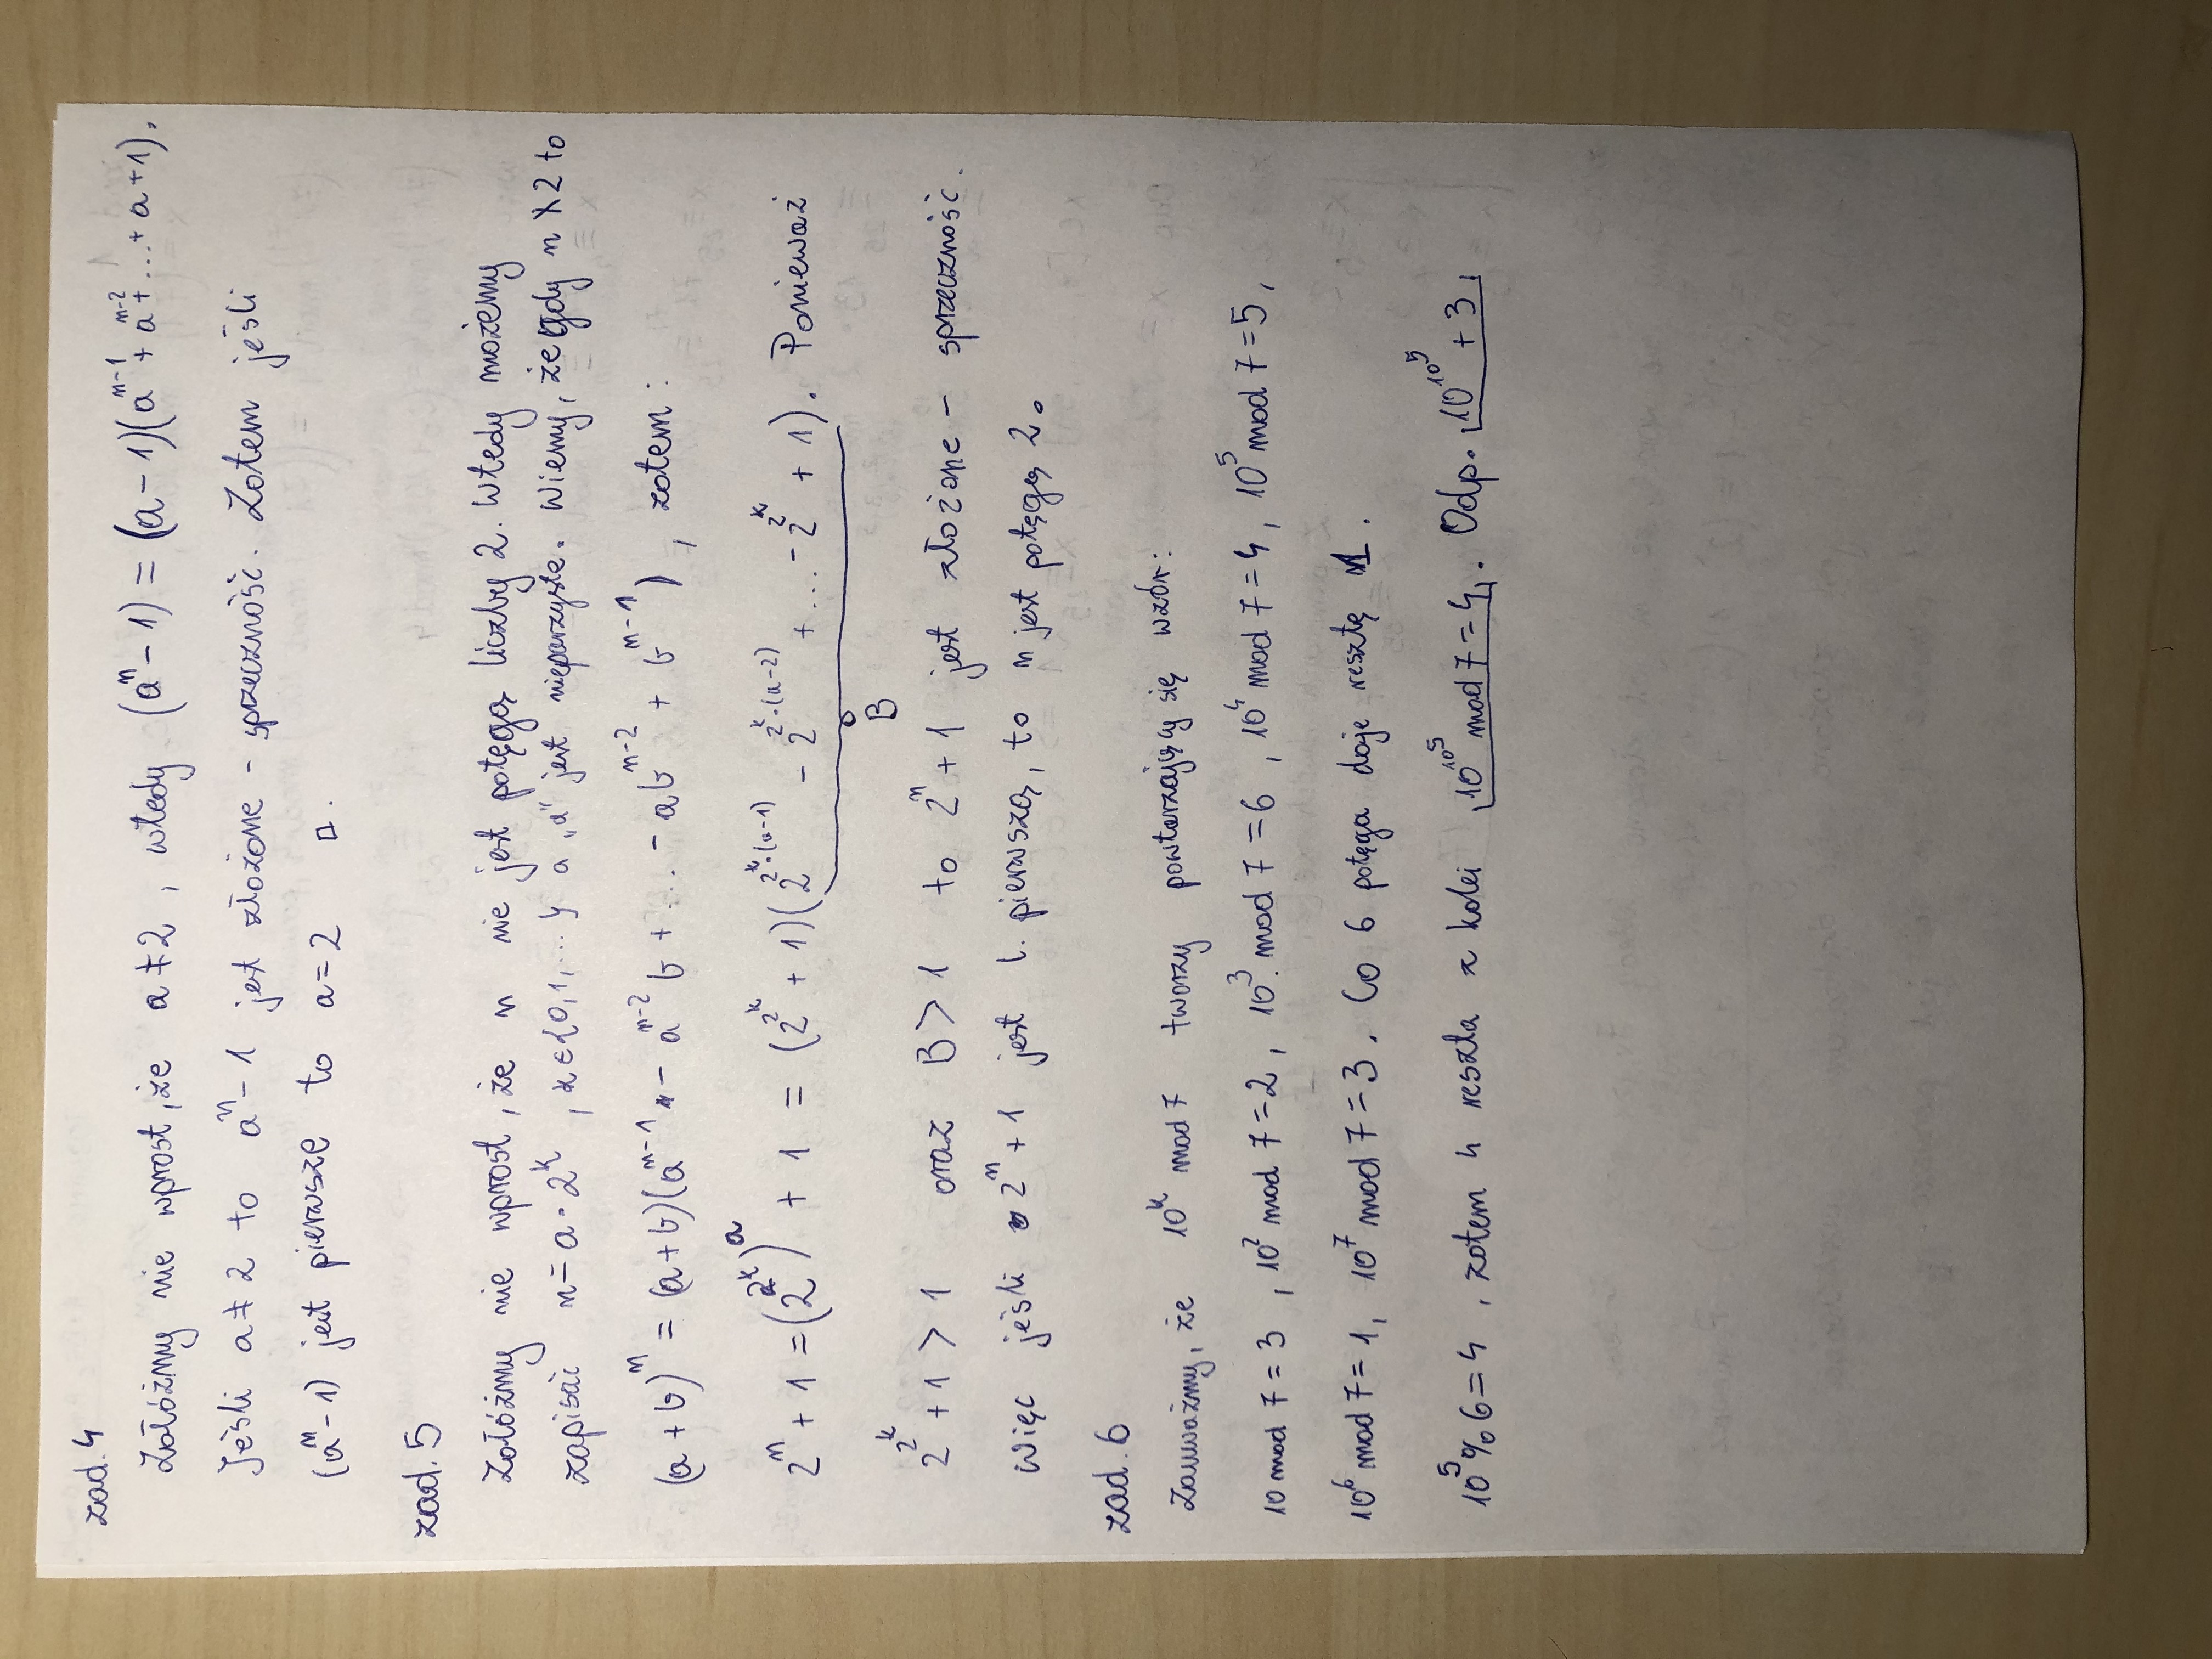 zad. 4
Załóżmy nie wprost, że a ≠ 2, wtedy (a^n - 1) = (a - 1)(a^{n-1} + a^{n-2} + ... + a + 1).
Jeśli a ≠ 2 to a^n - 1 jest złożone - sprzeczność. Zatem jeśli
(a^n - 1) jest pierwsze to a = 2 □.
zad. 5
Załóżmy nie wprost, że n nie jest potęgą liczby 2. Wtedy możemy
zapisać n = a · 2^k, k ∈ {0, 1, ...} a „a" jest nieparzyste. Wiemy, że gdy n ∤ 2 to
(a + b)^n = (a + b)(a^{n-1} - a^{n-2} b + ... - ab^{n-2} + b^{n-1}), zatem:
2^n + 1 = (2^{2^k})^a + 1 = (2^{2^k} + 1)(2^{2^k·(a-1)} - 2^{2^k·(a-2)} + ... - 2^{2^k} + 1). Ponieważ
B
2^{2^k} + 1 > 1 oraz B > 1 to 2^n + 1 jest złożone - sprzeczność.
Więc jeśli 2^n + 1 jest l. pierwszą, to n jest potęgą 2.
zad. 6
Zauważmy, że 10^k mod 7 tworzy powtarzający się wzór:
10 mod 7 = 3, 10^2 mod 7 = 2, 10^3 mod 7 = 6, 10^4 mod 7 = 4, 10^5 mod 7 = 5,
10^6 mod 7 = 1, 10^7 mod 7 = 3. Co 6 potęga daje resztę 1.
10^5 % 6 = 4, zatem 4 reszta z kolei 10^{10^5} mod 7 = 4. Odp. 10^{10^5} + 3